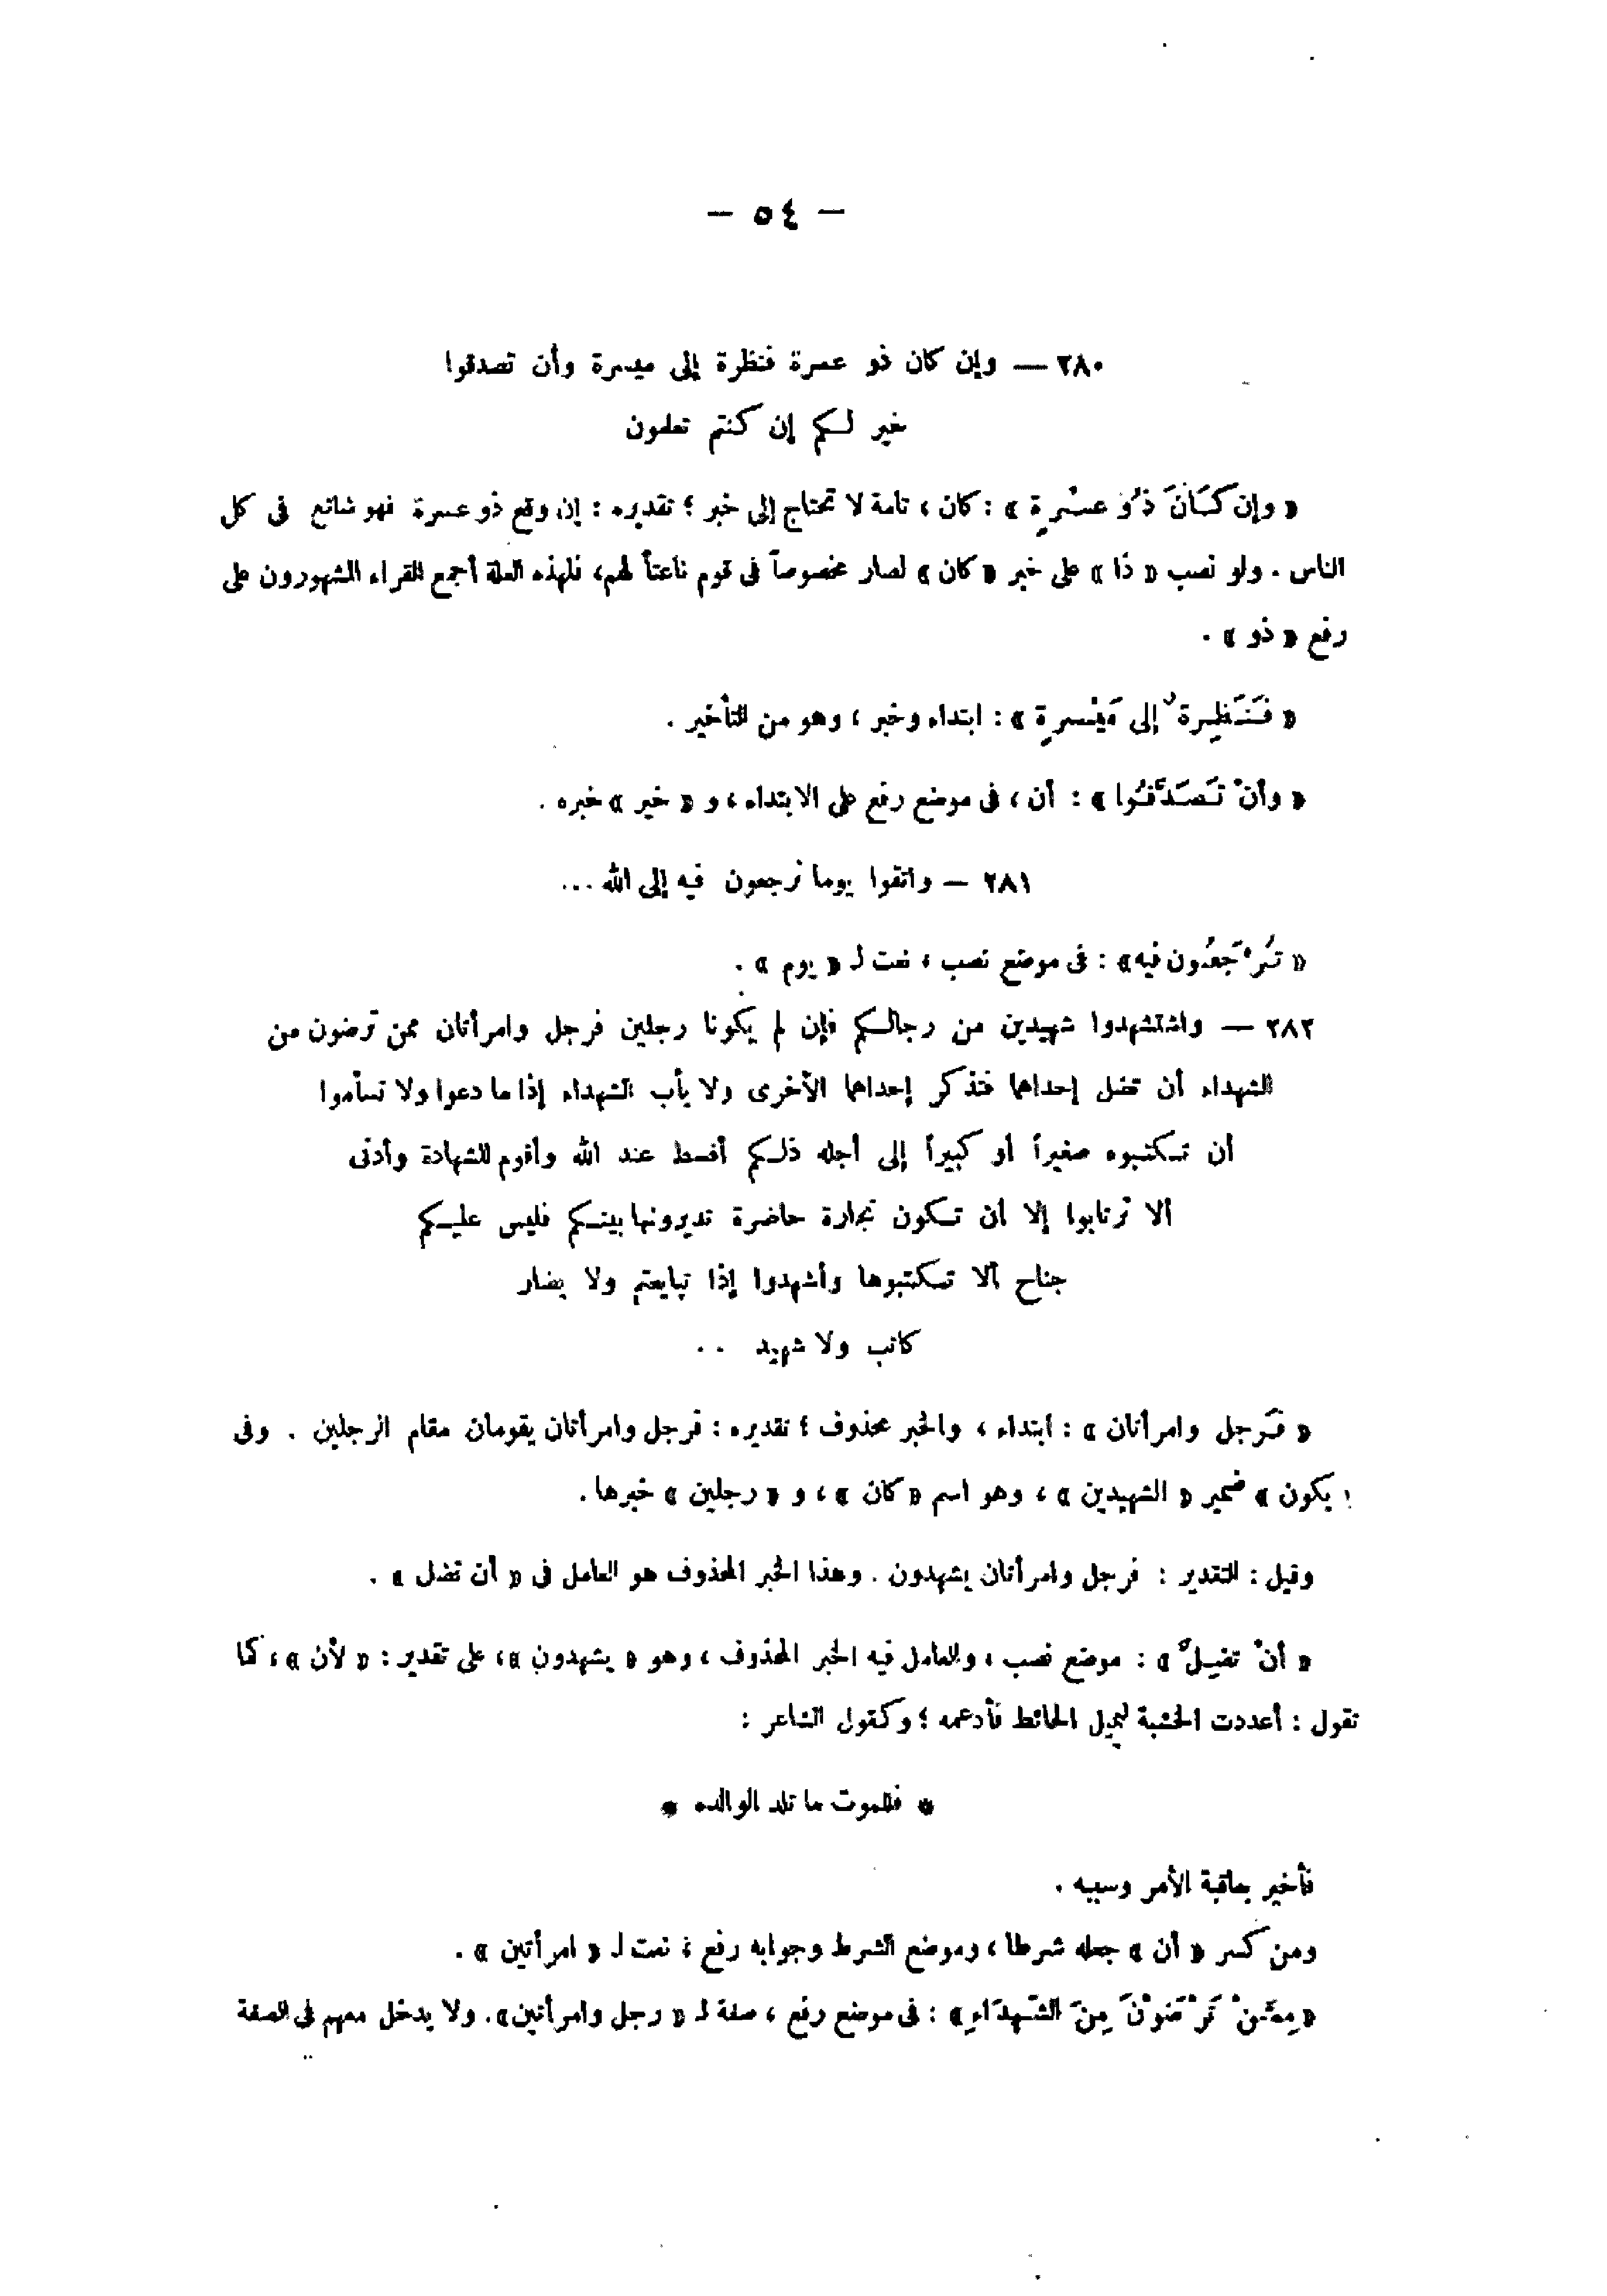 — ٥٤ —
٢٨٠ — وإن كان ذو عسرة فنظرة إلى ميسرة وأن تصدقوا
خير لكم إن كنتم تعلمون
« وإن كَانَ ذُو عسْرةٍ » : كان ، تامة لا تحتاج إلى خبر ؛ تقديره : إن وقع ذو عسرة فهو شائع فى كل
الناس . ولو نصب « ذا » على خبر « كان » لصار مخصوصاً فى قوم ناعتاً لهم، فلهذه العلة أجمع القراء المشهورون على
رفع « ذو » .
« فَنَظِرة ٌ إلى مَيْسرةٍ » : ابتداء وخبر ، وهو من التأخير .
« وأنْ تَصَدَّقُوا » : أن ، فى موضع رفع على الابتداء ، و « خير » خبره .
٢٨١ — واتقوا يوما ترجعون فيه إلى الله ...
« تُرْجَعُون فيه» : فى موضع نصب ، نعت لـ « يوم » .
٢٨٢ — واستشهدوا شهيدين من رجالكم فإن لم يكونا رجلين فرجل وامرأتان ممن ترضون من
الشهداء أن تضل إحداهما فتذكر إحداهما الأخرى ولا يأب الشهداء إذا ما دعوا ولا تسأموا
أن تكتبوه صغيراً أو كبيراً إلى أجله ذلكم أقسط عند الله وأقوم للشهادة وأدنى
ألا ترتابوا إلا أن تكون تجارة حاضرة تديرونها بينكم فليس عليكم
جناح ألا تكتبوها وأشهدوا إذا تبايعتم ولا يضار
كاتب ولا شهيد . .
« فَرجل وامرأتان » : ابتداء ، والخبر محذوف ؛ تقديره : فرجل وامرأتان يقومان مقام الرجلين . وفى
« يكون » ضمير « الشهيدين » ، وهو اسم « كان » ، و « رجلين » خبرها .
وقيل : التقدير : فرجل وامرأتان يشهدون . وهذا الخبر المحذوف هو العامل فى « أن تضل » .
« أنْ تضِلّ » : موضع نصب ، والعامل فيه الخبر المحذوف ، وهو « يشهدون » ، على تقدير : « لأن » ، كما
تقول : أعددت الخشبة ليميل الحائط فأدعمه ؛ وكقول الشاعر :
* فللموت ما تلد الوالده *
فأخبر بعاقبة الأمر وسببه .
ومن كسر « أن » جعله شرطا ، وموضع الشرط وجوابه رفع ؛ نعت لـ « امرأتين » .
« مِمَّنْ تَرْضَوْنَ مِنَ الشّهدَاءِ » : فى موضع رفع ، صفة لـ « رجل وامرأتين» . ولا يدخل معهم فى الصفة